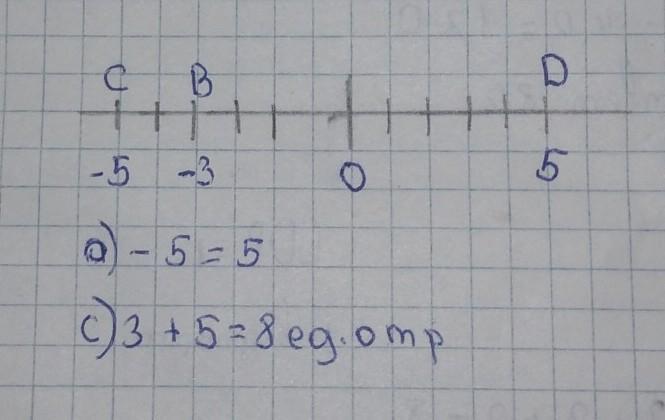 C B D
-5 -3 0 5
а) - 5 = 5
с) 3 + 5 = 8 ед. отр